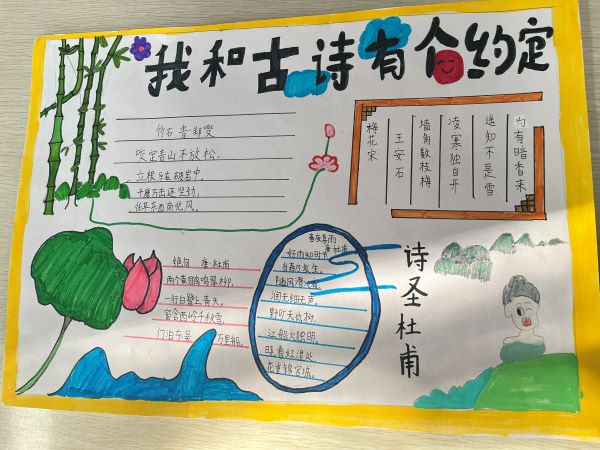 我和古诗有个约定
竹石 清·郑燮
咬定青山不放松，
立根原在破岩中。
千磨万击还坚劲，
任尔东西南北风。
梅花 宋
王安石
墙角数枝梅
凌寒独自开
遥知不是雪
为有暗香来
绝句 唐·杜甫
两个黄鹂鸣翠柳，
一行白鹭上青天。
窗含西岭千秋雪，
门泊东吴万里船。
春夜喜雨
唐·杜甫
好雨知时节
当春乃发生。
随风潜入夜
润无细无声。
野旷天低树，
江船火独明。
晓看红湿处
花重锦官城。
诗圣杜甫